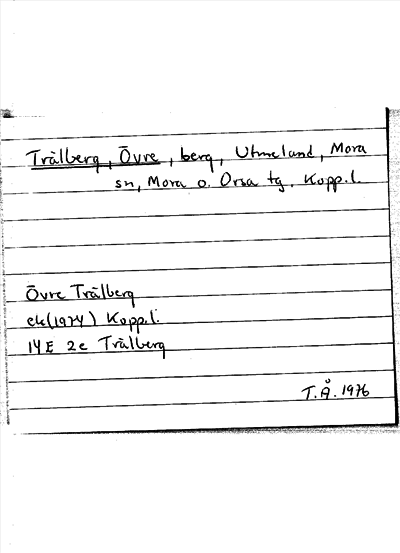 Trålberg, Övre, berg, Utmeland, Mora
sn, Mora o. Orsa tg, Kopp.l.
Övre Trålberg
ek(1974) Kopp.l.
14E 2e Trålberg
T.Å. 1976